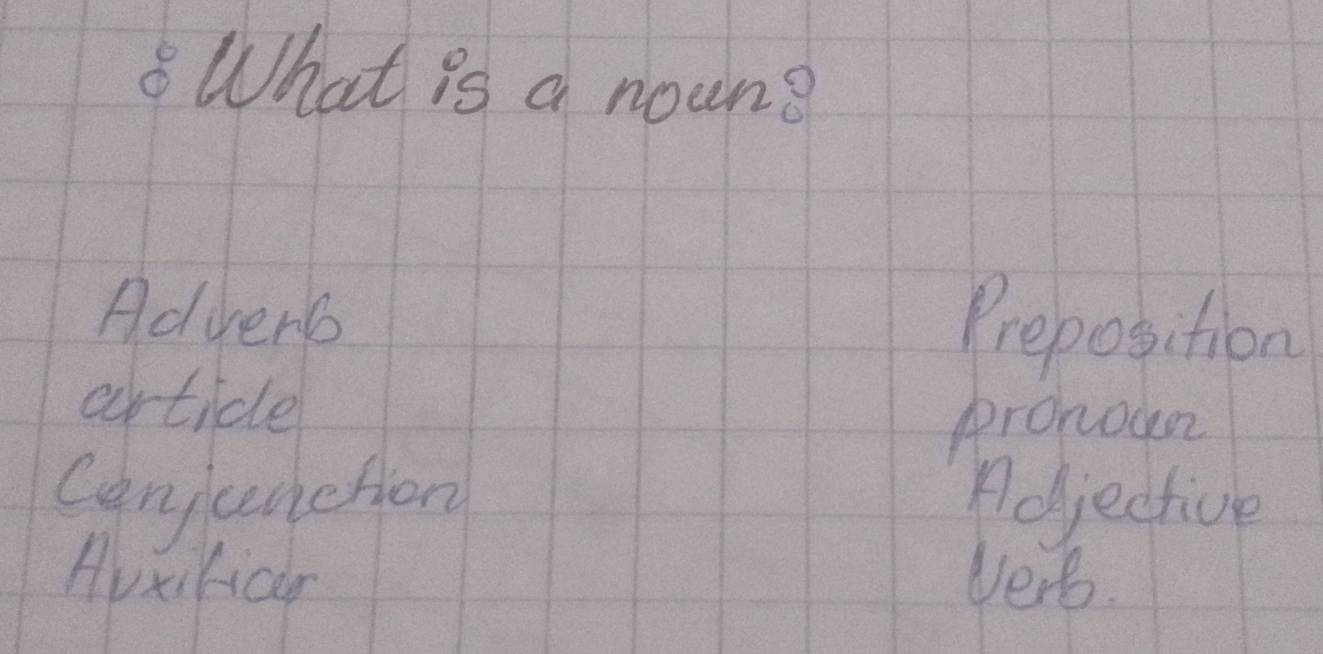 : What is a noun?
Adverb
article
Conjunction
Auxiliar
Preposition
pronoun
Adjective
Verb.